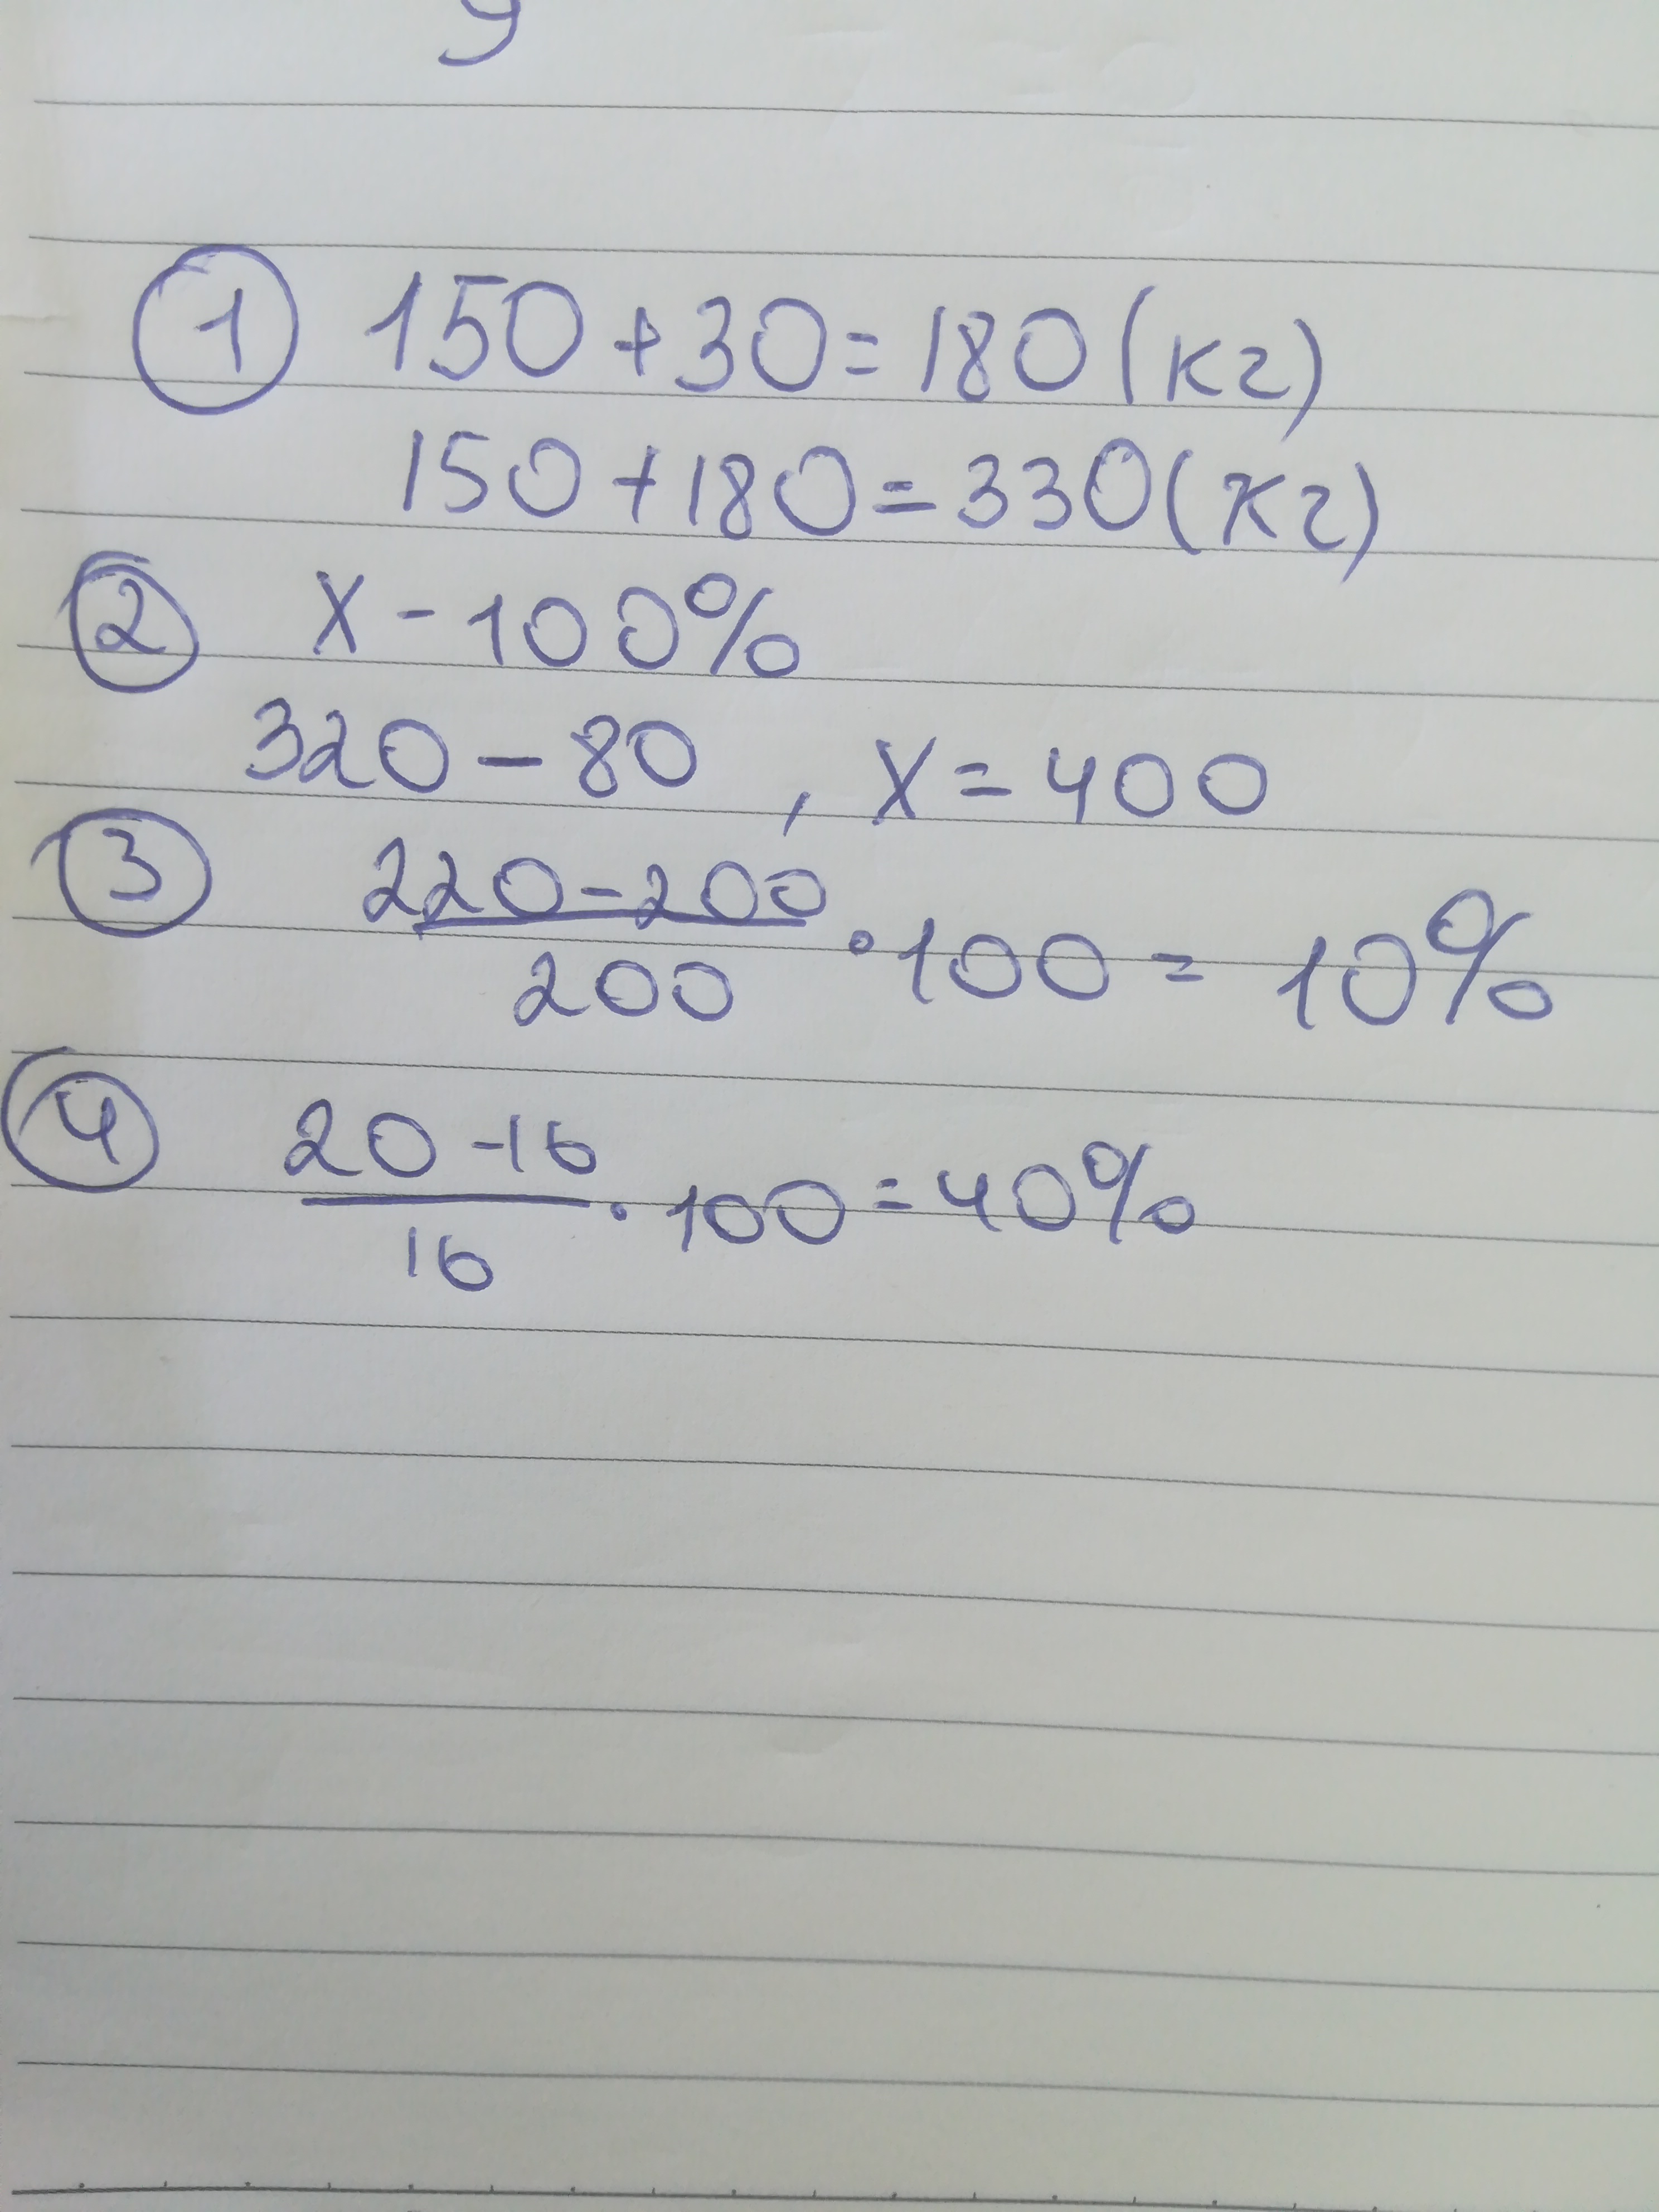 ① 150 + 30 = 180 (кг)
150 + 180 = 330 (кг)
② X - 100%
320 - 80 , X = 400
③ (220 - 200)/200 · 100 = 10%
④ (20 - 16)/16 · 100 = 40%